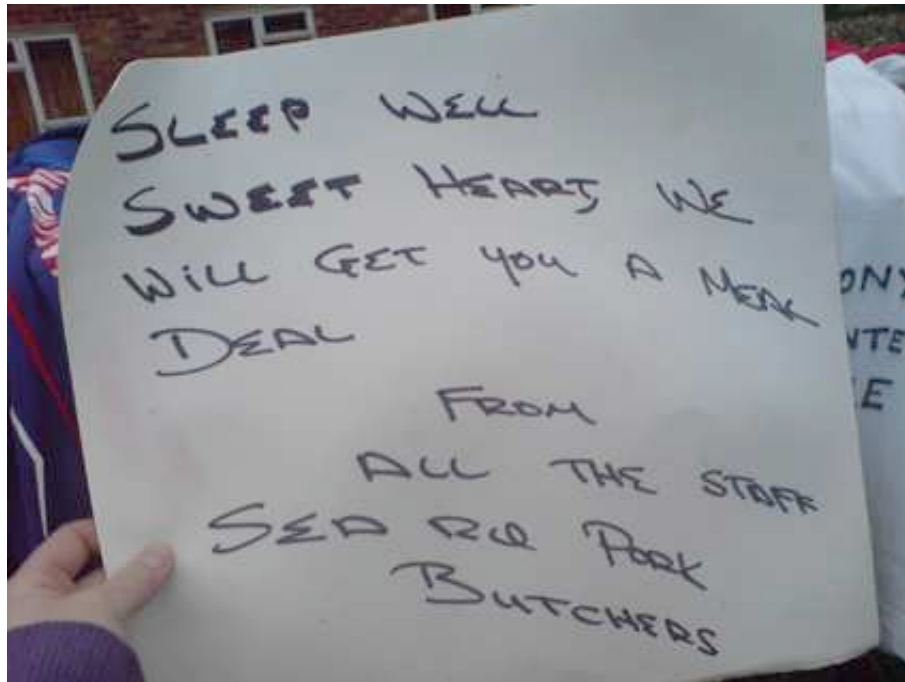 SLEEP WELL
SWEET HEART, WE
WILL GET YOU A MEAK
DEAL
FROM
ALL THE STAFF
SEA RD PORK
BUTCHERS
ONY
NTE
LE